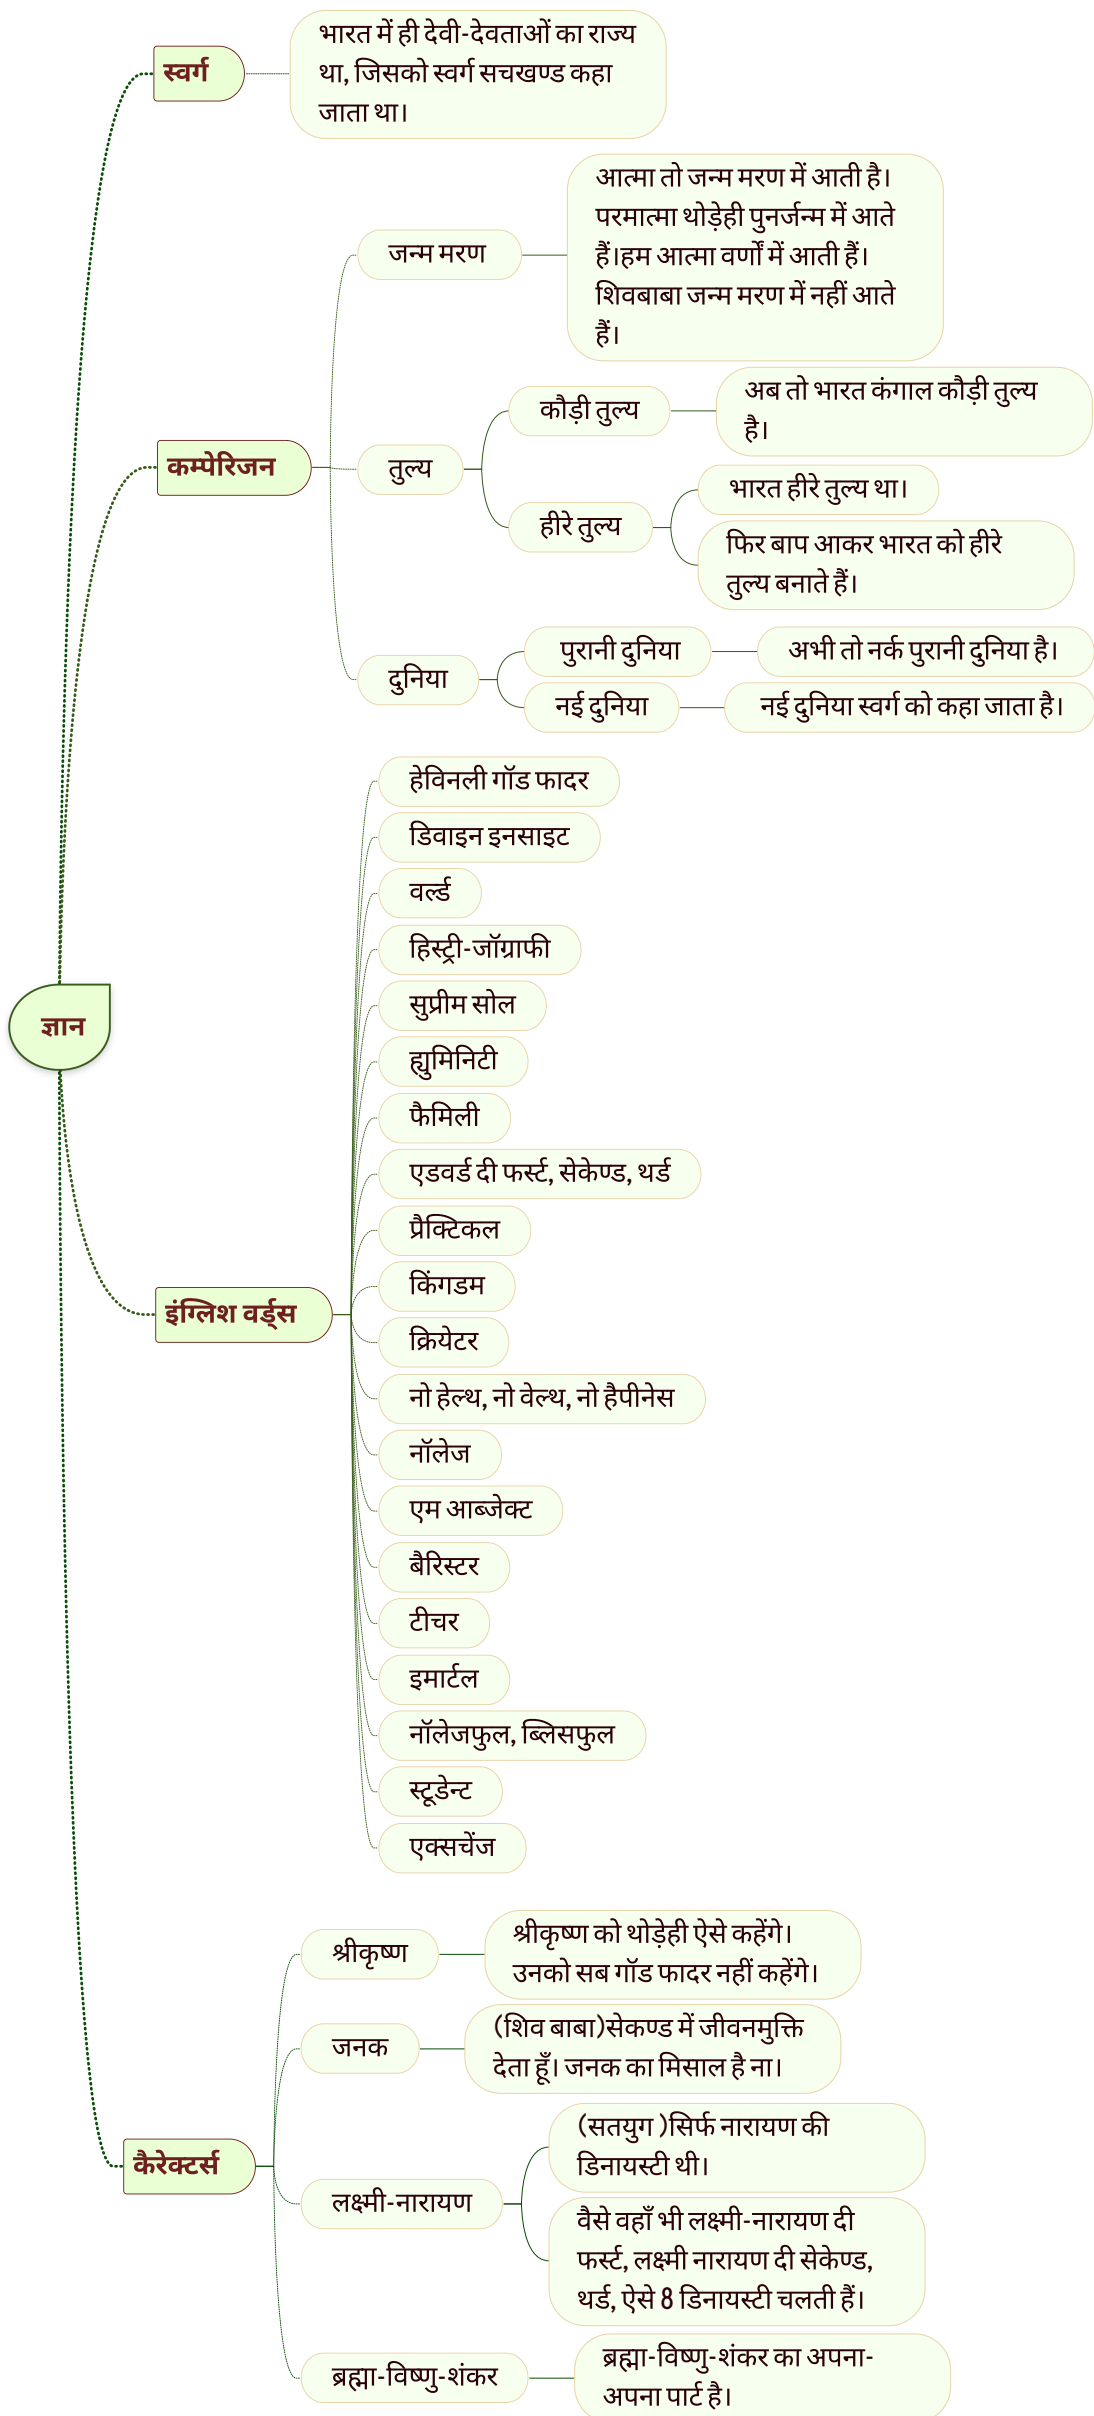 स्वर्ग
भारत में ही देवी-देवताओं का राज्य
था, जिसको स्वर्ग सचखण्ड कहा
जाता था।
कम्पेरिजन
जन्म मरण
आत्मा तो जन्म मरण में आती है।
परमात्मा थोड़ेही पुनर्जन्म में आते
हैं।हम आत्मा वर्णों में आती हैं।
शिवबाबा जन्म मरण में नहीं आते
हैं।
तुल्य
कौड़ी तुल्य
अब तो भारत कंगाल कौड़ी तुल्य
है।
हीरे तुल्य
भारत हीरे तुल्य था।
फिर बाप आकर भारत को हीरे
तुल्य बनाते हैं।
दुनिया
पुरानी दुनिया
अभी तो नर्क पुरानी दुनिया है।
नई दुनिया
नई दुनिया स्वर्ग को कहा जाता है।
ज्ञान
इंग्लिश वर्ड्स
हेविनली गॉड फादर
डिवाइन इनसाइट
वर्ल्ड
हिस्ट्री-जॉग्राफी
सुप्रीम सोल
ह्युमिनिटी
फैमिली
एडवर्ड दी फर्स्ट, सेकेण्ड, थर्ड
प्रैक्टिकल
किंगडम
क्रियेटर
नो हेल्थ, नो वेल्थ, नो हैपीनेस
नॉलेज
एम आब्जेक्ट
बैरिस्टर
टीचर
इमार्टल
नॉलेजफुल, ब्लिसफुल
स्टूडेन्ट
एक्सचेंज
कैरेक्टर्स
श्रीकृष्ण
श्रीकृष्ण को थोड़ेही ऐसे कहेंगे।
उनको सब गॉड फादर नहीं कहेंगे।
जनक
(शिव बाबा)सेकण्ड में जीवनमुक्ति
देता हूँ। जनक का मिसाल है ना।
लक्ष्मी-नारायण
(सतयुग )सिर्फ नारायण की
डिनायस्टी थी।
वैसे वहाँ भी लक्ष्मी-नारायण दी
फर्स्ट, लक्ष्मी नारायण दी सेकेण्ड,
थर्ड, ऐसे 8 डिनायस्टी चलती हैं।
ब्रह्मा-विष्णु-शंकर
ब्रह्मा-विष्णु-शंकर का अपना-
अपना पार्ट है।